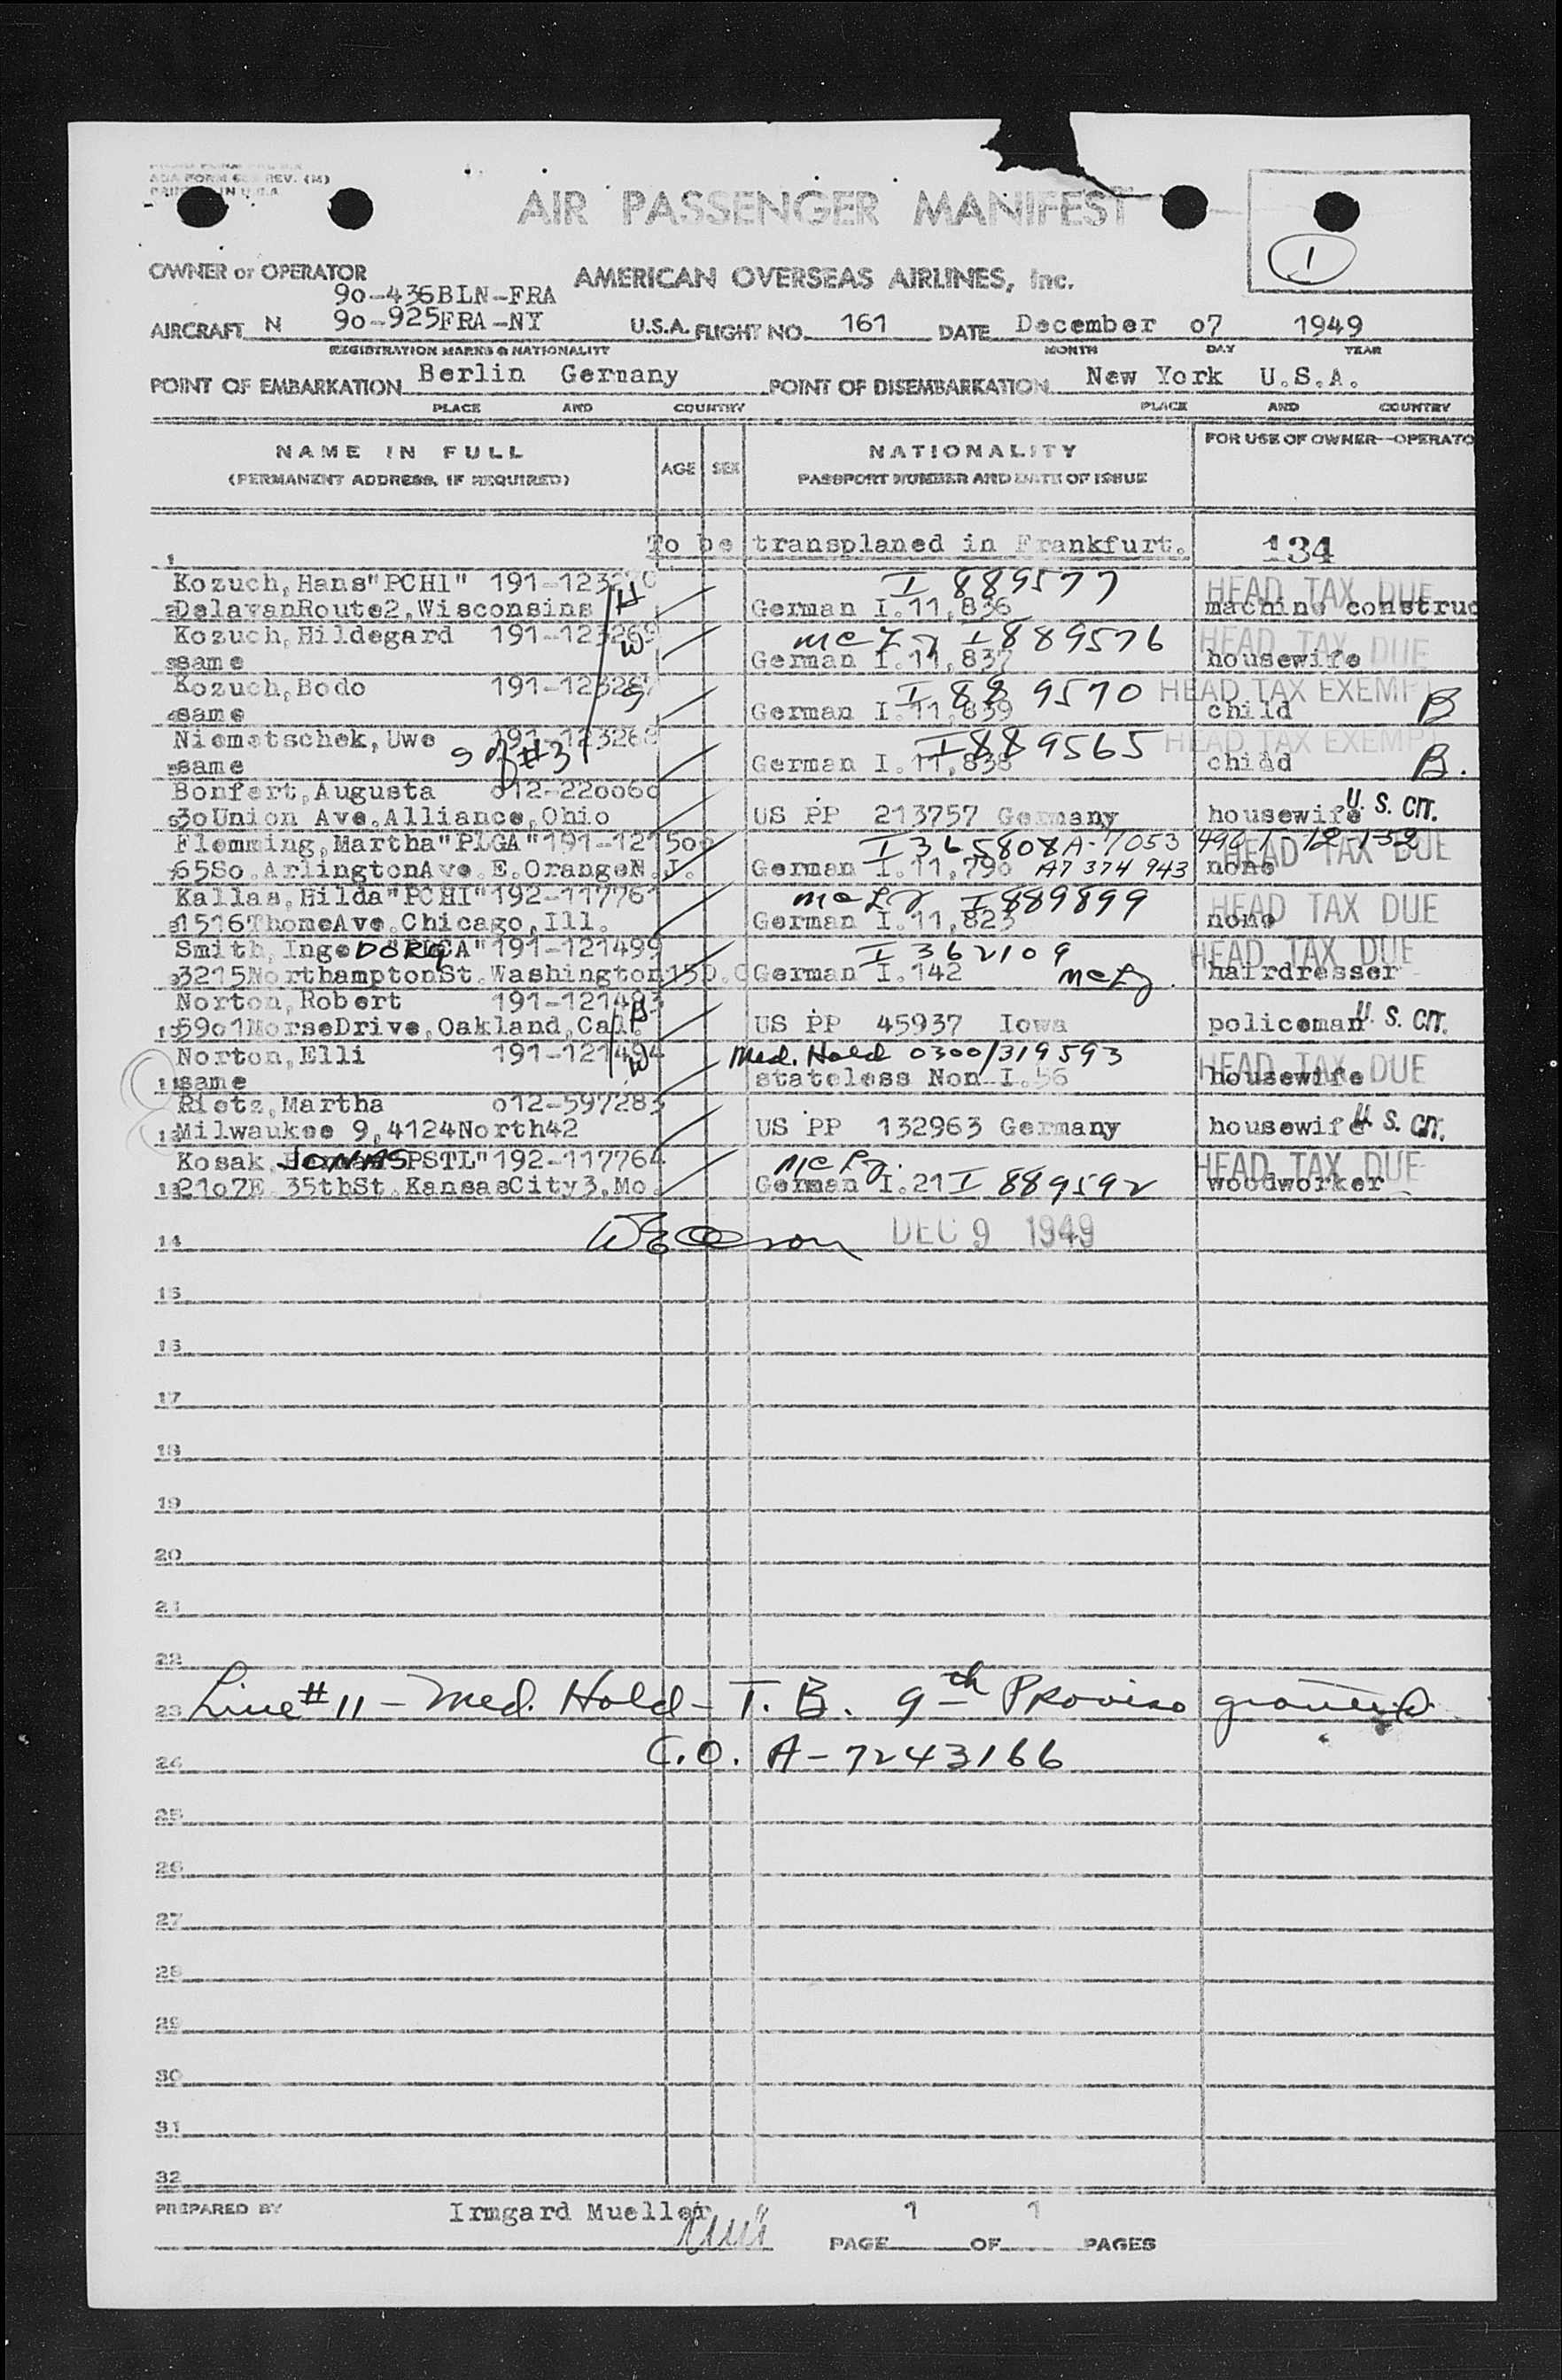 AOA FORM REV. (M)
PRINTED IN U.S.A.
AIR PASSENGER MANIFEST
1
OWNER or OPERATOR
AMERICAN OVERSEAS AIRLINES, Inc.
9o-436BLN-FRA
AIRCRAFT N 9o-925FRA-NY U.S.A. FLIGHT NO. 161 DATE December o7 1949
REGISTRATION MARKS & NATIONALITY MONTH DAY YEAR
POINT OF EMBARKATION Berlin Germany POINT OF DISEMBARKATION New York U.S.A.
PLACE AND COUNTRY PLACE AND COUNTRY
NAME IN FULL AGE SEX NATIONALITY FOR USE OF OWNER--OPERATO
(PERMANENT ADDRESS, IF REQUIRED) PASSPORT NUMBER AND DATE OF ISSUE
1 To be transplaned in Frankfurt. 134
Kozuch,Hans"PCHI" 191-123270 H I 889577 HEAD TAX DUE
2 DelavanRoute2,Wisconsins German I.11,836 machine construc
Kozuch,Hildegard 191-123269 W McLg I 889576 HEAD TAX DUE
3 same German I.11,837 housewife
Kozuch,Bodo 191-123267 S I 889570 HEAD TAX EXEMPT
4 same German I.11,839 child B
Niemetschek,Uwe 191-123268 S of #3 I 889565 HEAD TAX EXEMPT
5 same German I.11,838 chidd B.
Bonfert,Augusta o12-22oo6o
6 3oUnion Ave.Alliance,Ohio US PP 213757 Germany housewife U. S. CIT.
Flemming,Martha"PLGA"191-1215oo I 365808 A-7053 490 T-12-132
7 65So.ArlingtonAve.E.OrangeN.J. German I.11,79o A7 374 943 none HEAD TAX DUE
Kallas,Hilda"PCHI"192-117761 McLg I 889899 HEAD TAX DUE
8 1516ThomeAve.Chicago,Ill. German I.11,823 none
Smith,Inge DORA "PLCA"191-121499 I 362109 HEAD TAX DUE
9 3215NorthamptonSt.Washington15D.C German I.142 McLg. hairdresser
Norton,Robert 191-121493 H
10 59o1MorseDrive,Oakland,Cal. US PP 45937 Iowa policeman U. S. CIT.
Norton,Elli 191-121494 W Med. Hold 0300/319593 HEAD TAX DUE
11 same stateless Non-I.56 housewife
Rietz,Martha o12-597283
12 Milwaukee 9,4124North42 US PP 132963 Germany housewife U. S. CIT.
Kosak, JONAS PSTL"192-117764 McLg. HEAD TAX DUE
13 21o7E 35thSt.KansasCity3,Mo. German I.21 I 889592 woodworker
14 DEC 9 1949
15
16
17
18
19
20
21
22
23 Line #11 - Med. Hold - T. B. 9th Proviso granted
24 C.O. A-7243166
25
26
27
28
29
30
31
32
PREPARED BY Irmgard Mueller 1 1
PAGE OF PAGES